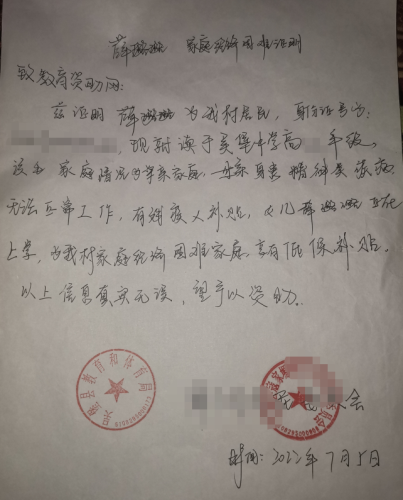 薛 家庭经济困难证明
致教育资助网:
兹证明 薛 为我村居民, 身份证号为:
, 现就读于吴堡中学高 年级,
该生家庭情况为单亲家庭, 母亲身患精神类疾病,
无法正常工作, 有残疾人补贴, 女儿薛 正在
上学, 为我村家庭经济困难家庭, 享有低保补贴.
以上信息真实无误, 望予以资助.
吴堡县教育和体育局
会
时间: 2022年7月5日